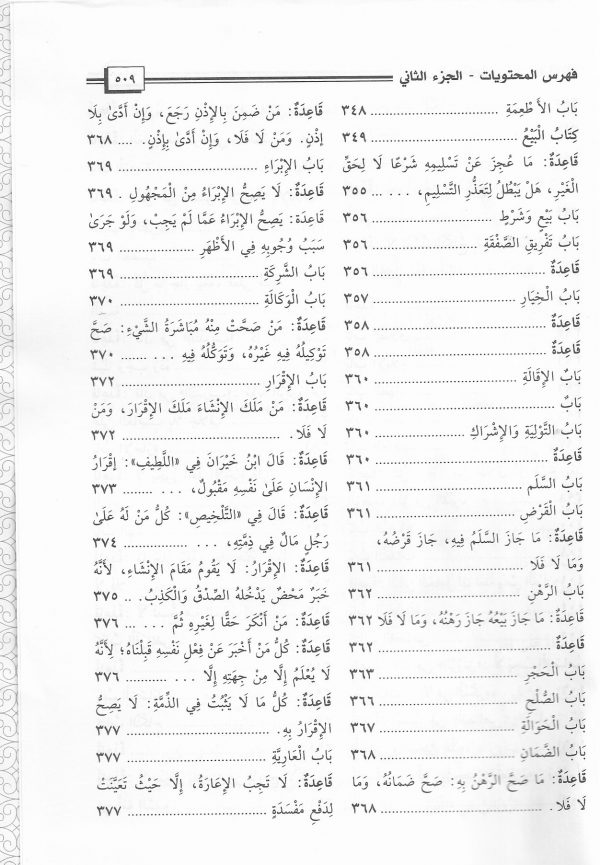 فهرس المحتويات - الجزء الثاني
٥٠٩
بَابُ الأَطْعِمَةِ ................ ٣٤٨
كِتَابُ الْبَيْعُ ................ ٣٤٩
قَاعِدَةٌ: مَا عُجِزَ عَنْ تَسْلِيمِهِ شَرْعًا لَا لِحَقِّ
الْغَيْرِ، هَلْ يَبْطُلُ لِتَعَذُّرِ التَّسْلِيمِ، ... ... ٣٥٥
بَابُ بَيْعٍ وَشَرْطٍ ................ ٣٥٦
بَابُ تَفْرِيقِ الصَّفْقَةِ ................ ٣٥٦
قَاعِدَةٌ ................ ٣٥٦
بَابُ الْخِيَارِ ................ ٣٥٧
قَاعِدَةٌ ................ ٣٥٨
قَاعِدَةٌ ................ ٣٥٨
بَابُ الإِقَالَةِ ................ ٣٦٠
بَابٌ ................ ٣٦٠
بَابُ التَّوْلِيَةِ وَالإِشْرَاكِ ................ ٣٦٠
قَاعِدَةٌ ................ ٣٦٠
بَابُ السَّلَمِ ................ ٣٦١
بَابُ الْقَرْضِ ................ ٣٦١
قَاعِدَةٌ: مَا جَازَ السَّلَمُ فِيهِ، جَازَ قَرْضُهُ،
وَمَا لَا فَلَا ................ ٣٦١
بَابُ الرَّهْنِ ................ ٣٦٢
قَاعِدَةٌ: مَا جَازَ بَيْعُهُ جَازَ رَهْنُهُ، وَمَا لَا فَلَا ٣٦٢
قَاعِدَةٌ ................ ٣٦٢
بَابُ الْحَجْرِ ................ ٣٦٣
بَابُ الصُّلْحِ ................ ٣٦٦
بَابُ الْحَوَالَةِ ................ ٣٦٧
بَابُ الضَّمَانِ ................ ٣٦٨
قَاعِدَةٌ: مَا صَحَّ الرَّهْنُ بِهِ: صَحَّ ضَمَانُهُ، وَمَا
لَا فَلَا. ................ ٣٦٨
قَاعِدَةٌ: مَنْ ضَمِنَ بِالإِذْنِ رَجَعَ، وَإِنْ أَدَّىٰ بِلَا
إِذْنٍ. وَمَنْ لَا فَلَا، وَإِنْ أَدَّىٰ بِإِذْنٍ. .... ٣٦٨
بَابُ الإِبْرَاءِ ................ ٣٦٩
قَاعِدَةٌ: لَا يَصِحُّ الإِبْرَاءُ مِنْ الْمَجْهُولِ . ٣٦٩
قَاعِدَة: يَصِحُّ الإِبْرَاءُ عَمَّا لَمْ يَجِبْ، وَلَوْ جَرَىٰ
سَبَبُ وُجُوبِهِ فِي الأَظْهَرِ ................ ٣٦٩
بَابُ الشَّرِكَةِ ................ ٣٦٩
بَابُ الْوَكَالَةِ ................ ٣٧٠
قَاعِدَةٌ: مَنْ صَحَّتْ مِنْهُ مُبَاشَرَةُ الشَّيْءِ: صَحَّ
تَوْكِيلُهُ فِيهِ غَيْرَهُ، وَتَوَكُّلُهُ فِيهِ ... ....... ٣٧٠
بَابُ الإِقْرَارِ ................ ٣٧٢
قَاعِدَةٌ: مَنْ مَلَكَ الإِنْشَاءَ مَلَكَ الإِقْرَارَ، وَمَنْ
لَا فَلَا. ................ ٣٧٢
قَاعِدَةٌ: قَالَ ابْنُ خَيْرَانَ فِي «اللَّطِيفِ»: إقْرَارُ
الإِنْسَانِ عَلَىٰ نَفْسِهِ مَقْبُولٌ، ... ........ ٣٧٣
قَاعِدَةٌ: قَالَ فِي «التَّلْخِيصِ»: كُلُّ مَنْ لَهُ عَلَىٰ
رَجُلٍ مَالٌ فِي ذِمَّتِهِ، ... ................ ٣٧٤
قَاعِدَةٌ: الإِقْرَارُ: لَا يَقُومُ مَقَامَ الإِنْشَاءِ، لأَنَّهُ
خَبَرٌ مَحْضٌ يَدْخُلُهُ الصِّدْقُ وَالْكَذِبُ. .. ٣٧٥
قَاعِدَةٌ: مَنْ أَنْكَرَ حَقًّا لِغَيْرِهِ ثُمَّ ... ... ٣٧٦
قَاعِدَةٌ: كُلُّ مَنْ أَخْبَرَ عَنْ فِعْلِ نَفْسِهِ قَبِلْنَاهُ؛ لِأَنَّهُ
لَا يُعْلَمُ إِلَّا مِنْ جِهَتِهِ إِلَّا ... ........... ٣٧٦
قَاعِدَةٌ: كُلُّ مَا لَا يَثْبُتُ فِي الذِّمَّةِ: لَا يَصِحُّ
الإِقْرَارُ بِهِ. ................ ٣٧٧
بَابُ الْعَارِيَّةِ ................ ٣٧٧
قَاعِدَةٌ: لَا تَجِبُ الإِعَارَةُ، إِلَّا حَيْثُ تَعَيَّنَتْ
لِدَفْعِ مَفْسَدَةٍ ................ ٣٧٧